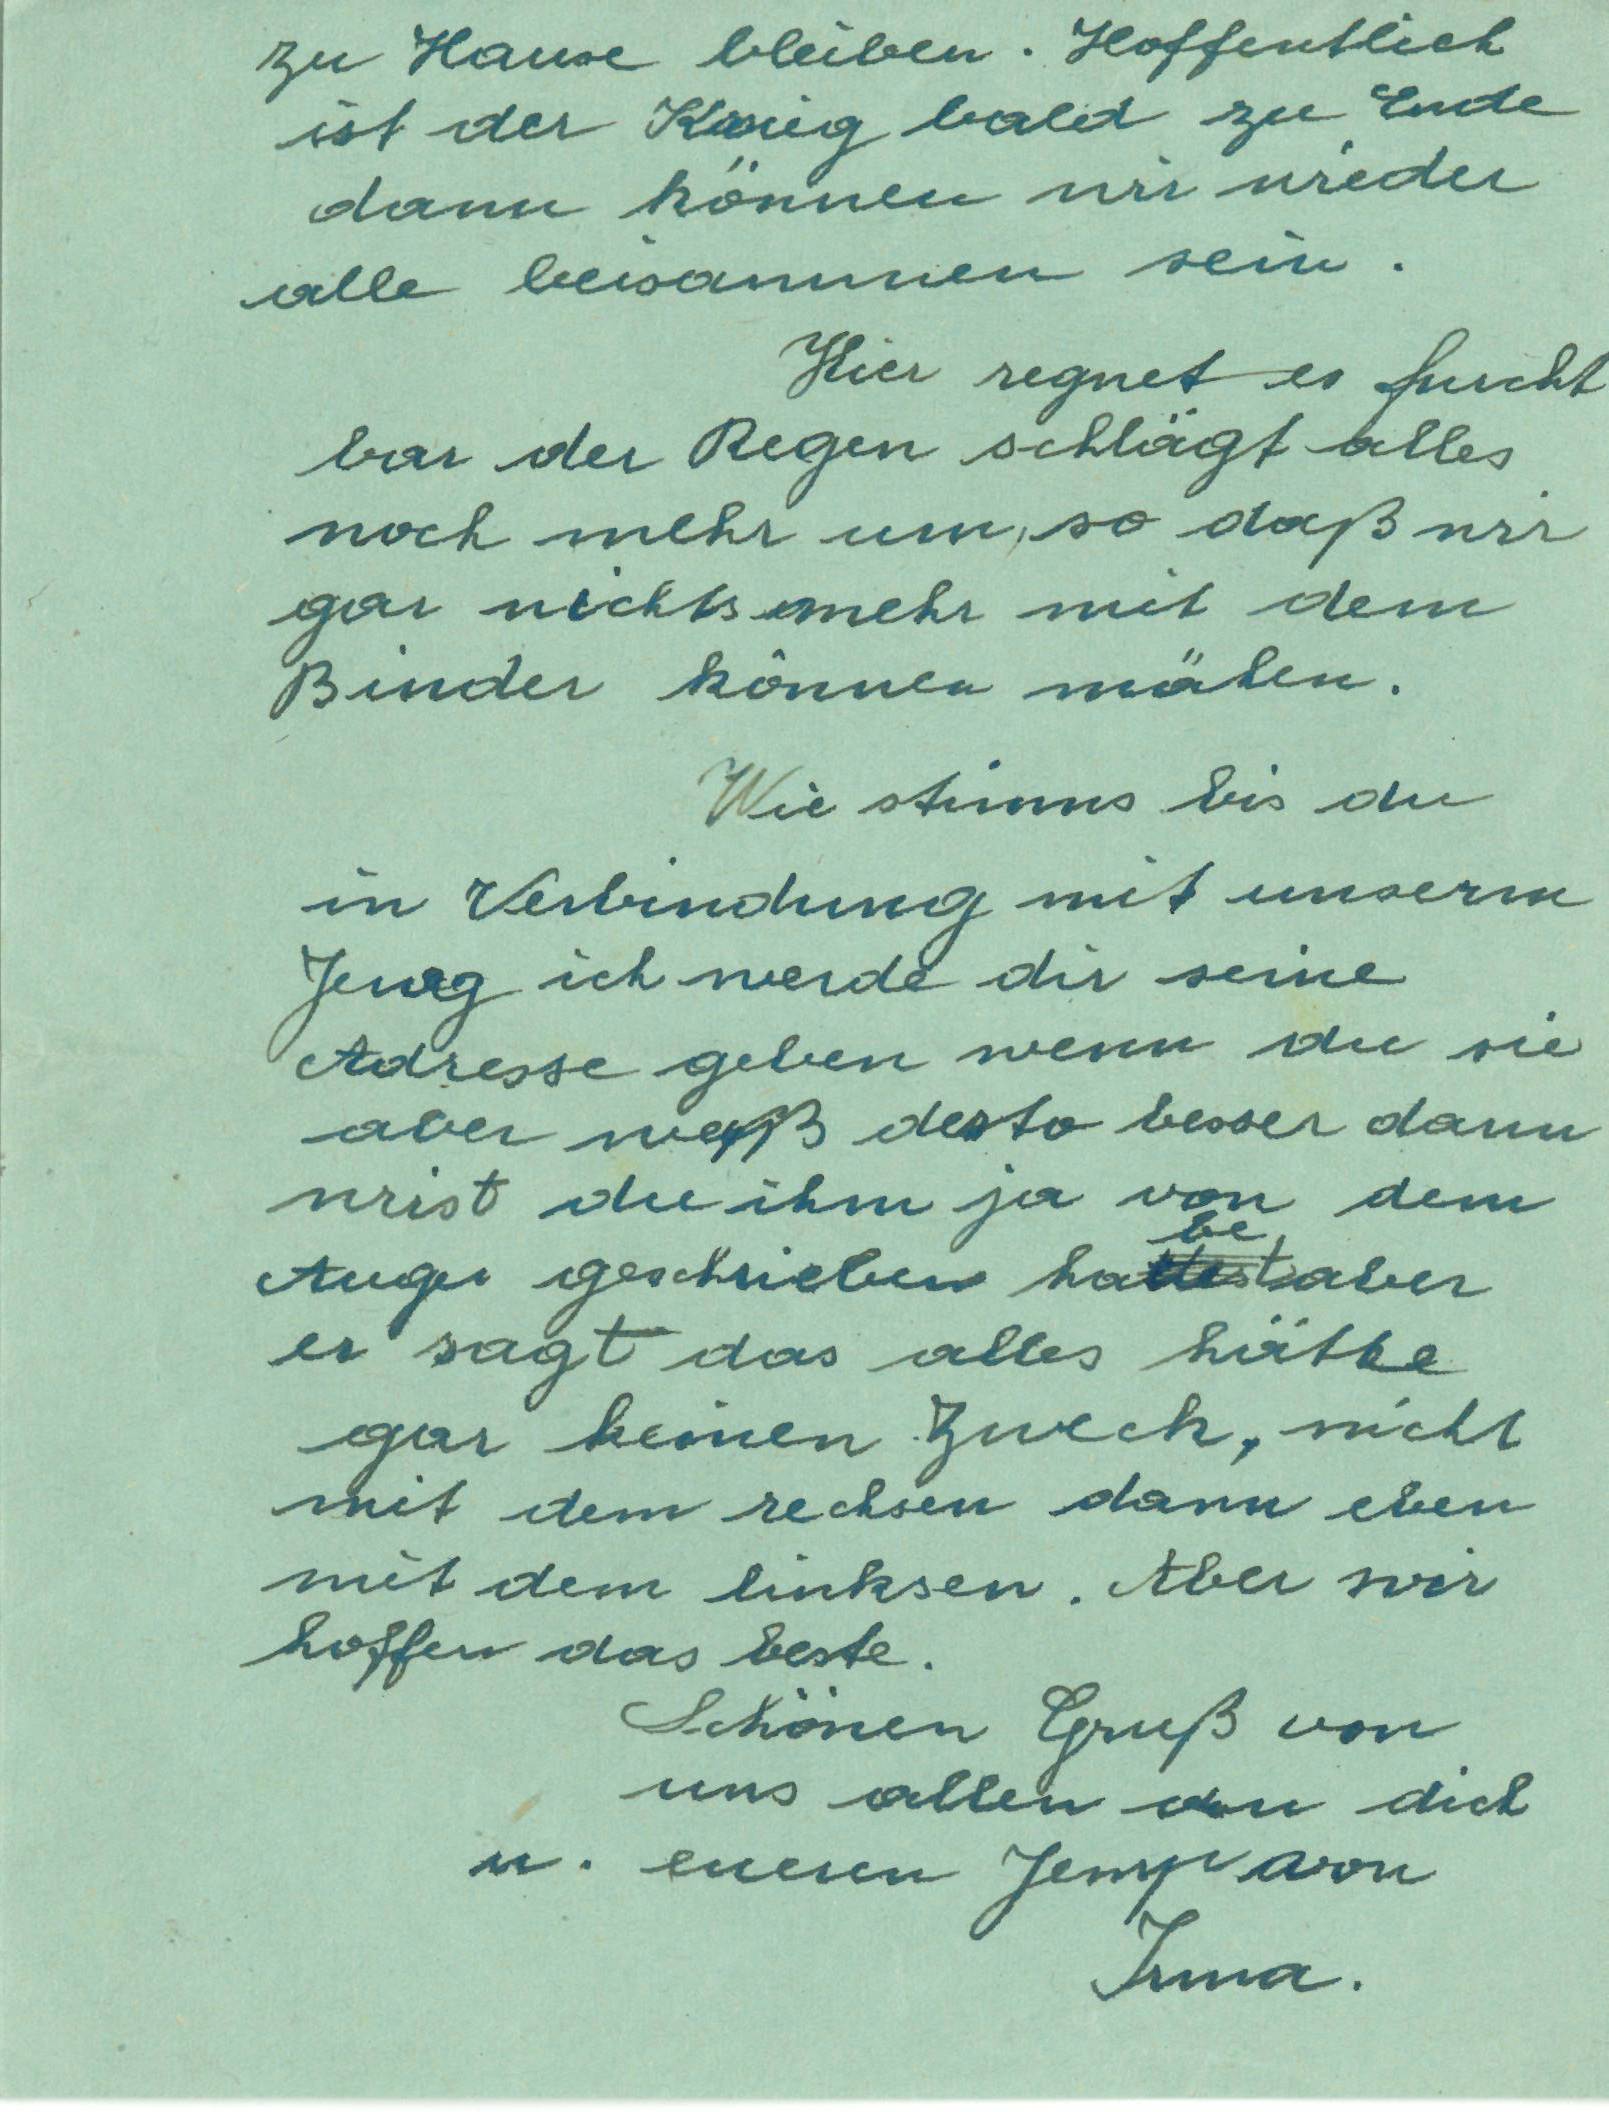 zu Hause bleiben. Hoffentlich
ist der Krieg bald zu Ende
dann können wir wieder
alle beisammen sein.
Hier regnet es furcht
bar der Regen schlägt alles
noch mehr um, so daß wir
gar nichts mehr mit dem
Binder können mähen.
Wie stimms bis du
in Verbindung mit unserm
Jeng ich werde dir seine
Adresse geben wenn du sie
aber weß desto besser dann
wist du ihm ja von dem
Auge geschrieben habe aber
er sagt das alles hätte
gar keinen Zweck, nicht
mit dem rechsen dann eben
mit dem linksen. Aber wir
hoffen das beste.
Schönen Gruß von
uns allen an dich
u. euern Jemp von
Irma.